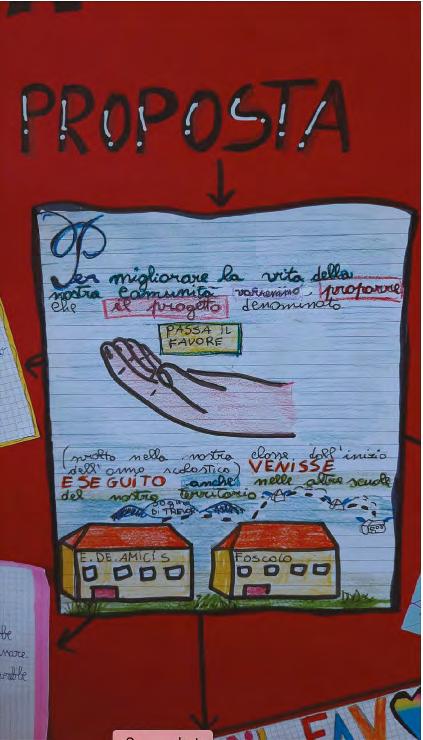 PROPOSTA
Per migliorare la vita della
nostra comunità vorremmo proporre
che il progetto denominato
PASSA IL
FAVORE
(svolto nella nostra classe dall'inizio
dell'anno scolastico) VENISSE
ESEGUITO anche nelle altre scuole
del nostro territorio
SOGNO
DI TREVOR
E. DE AMICIS
FOSCOLO
FAV